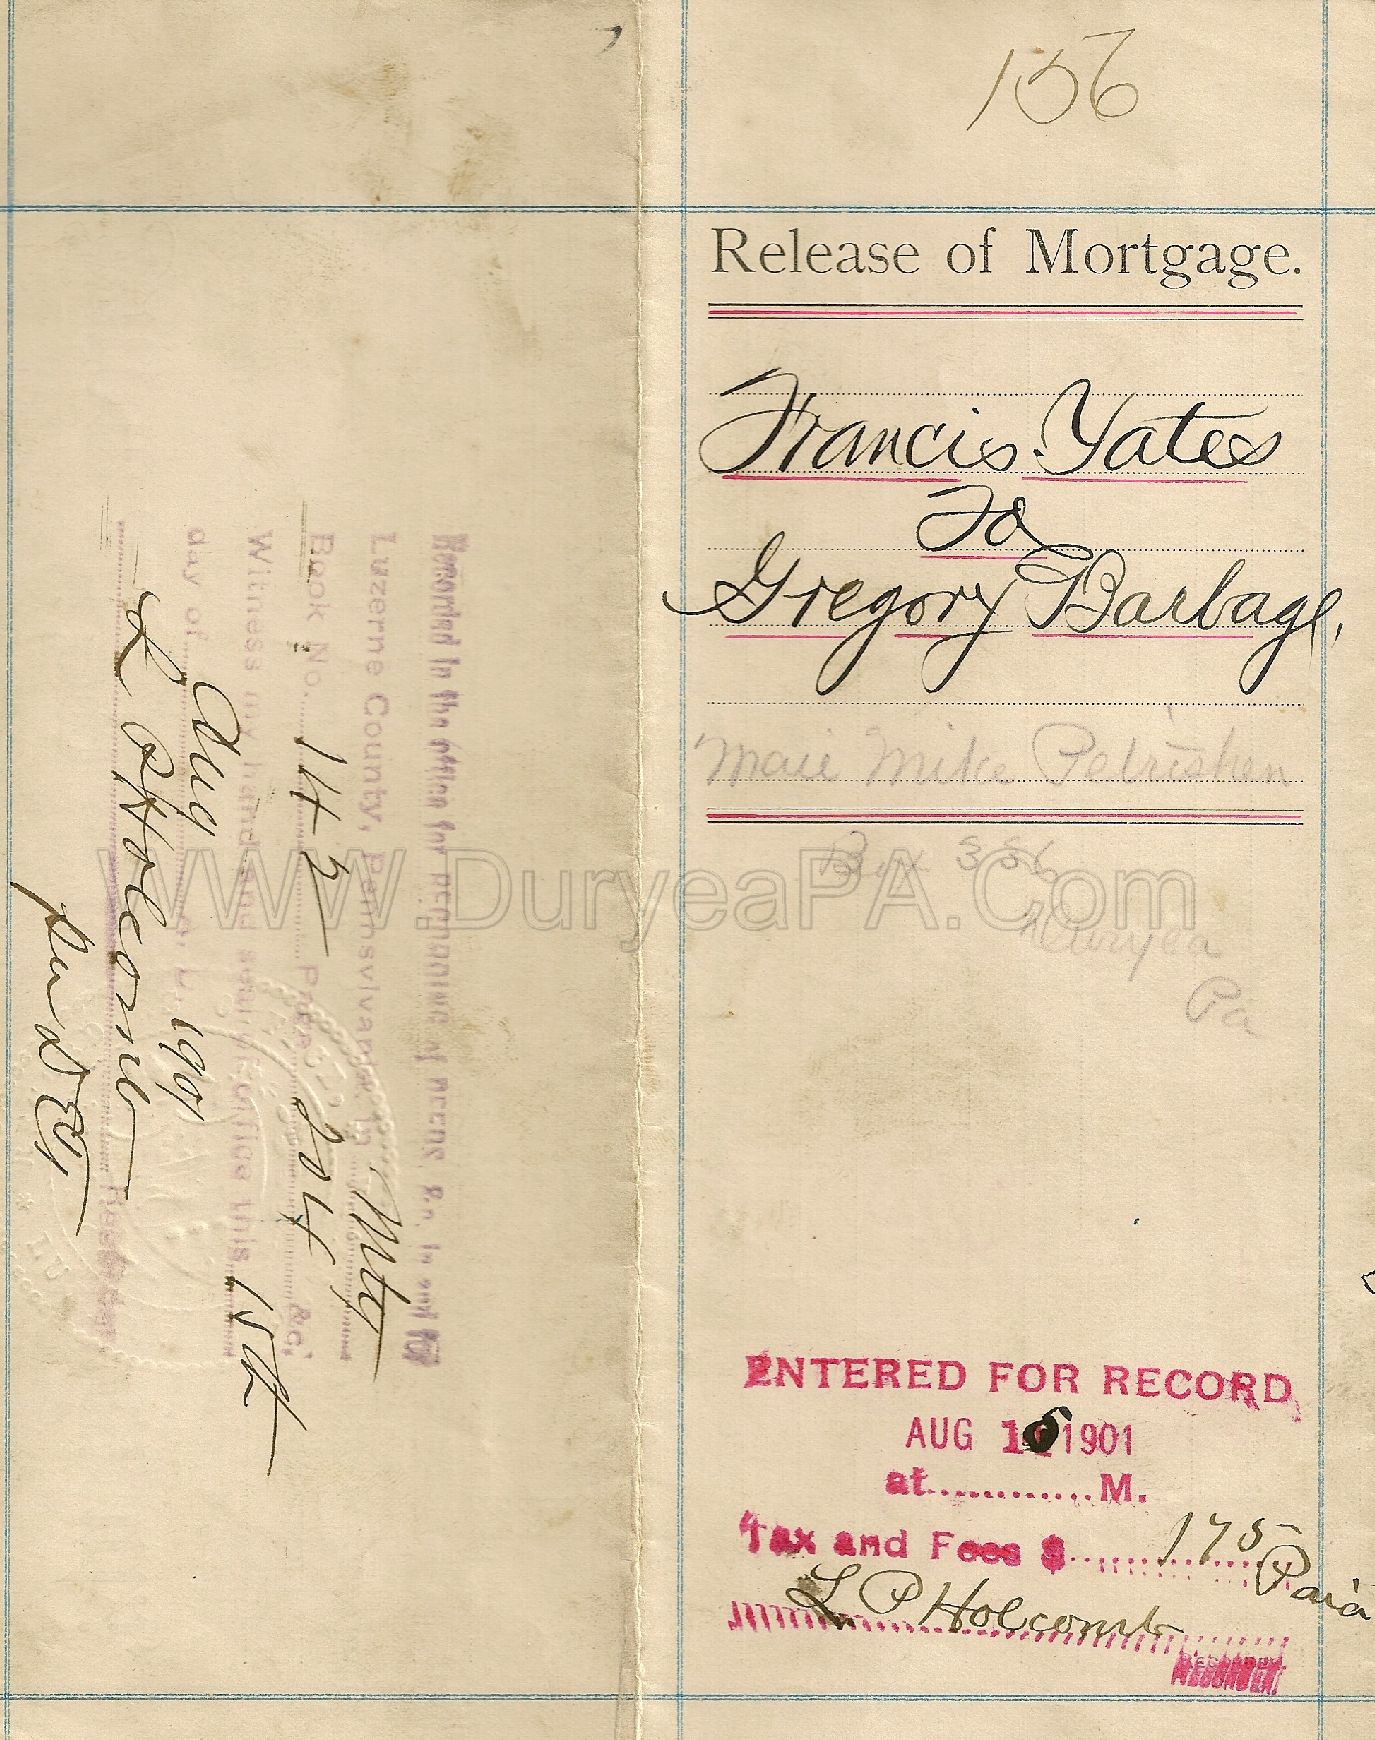 156
Release of Mortgage.
Francis Yates
To
Gregory Barbage,
Mail Mike Petrishen
Box 356
Duryea
Pa
ENTERED FOR RECORD
AUG 15 1901
at............M.
Tax and Fees $............175 Paid
L P Holcomb
RECORDER.
Recorded in the office for recording of deeds, &c, in and for
Luzerne County, Pennsylvania in Mtg
Book No. 142 Page 204 &c,
Witness my hand and seal of office this 15th
day of Aug 1901
L P Holcomb Recorder
WWW.DuryeaPA.Com